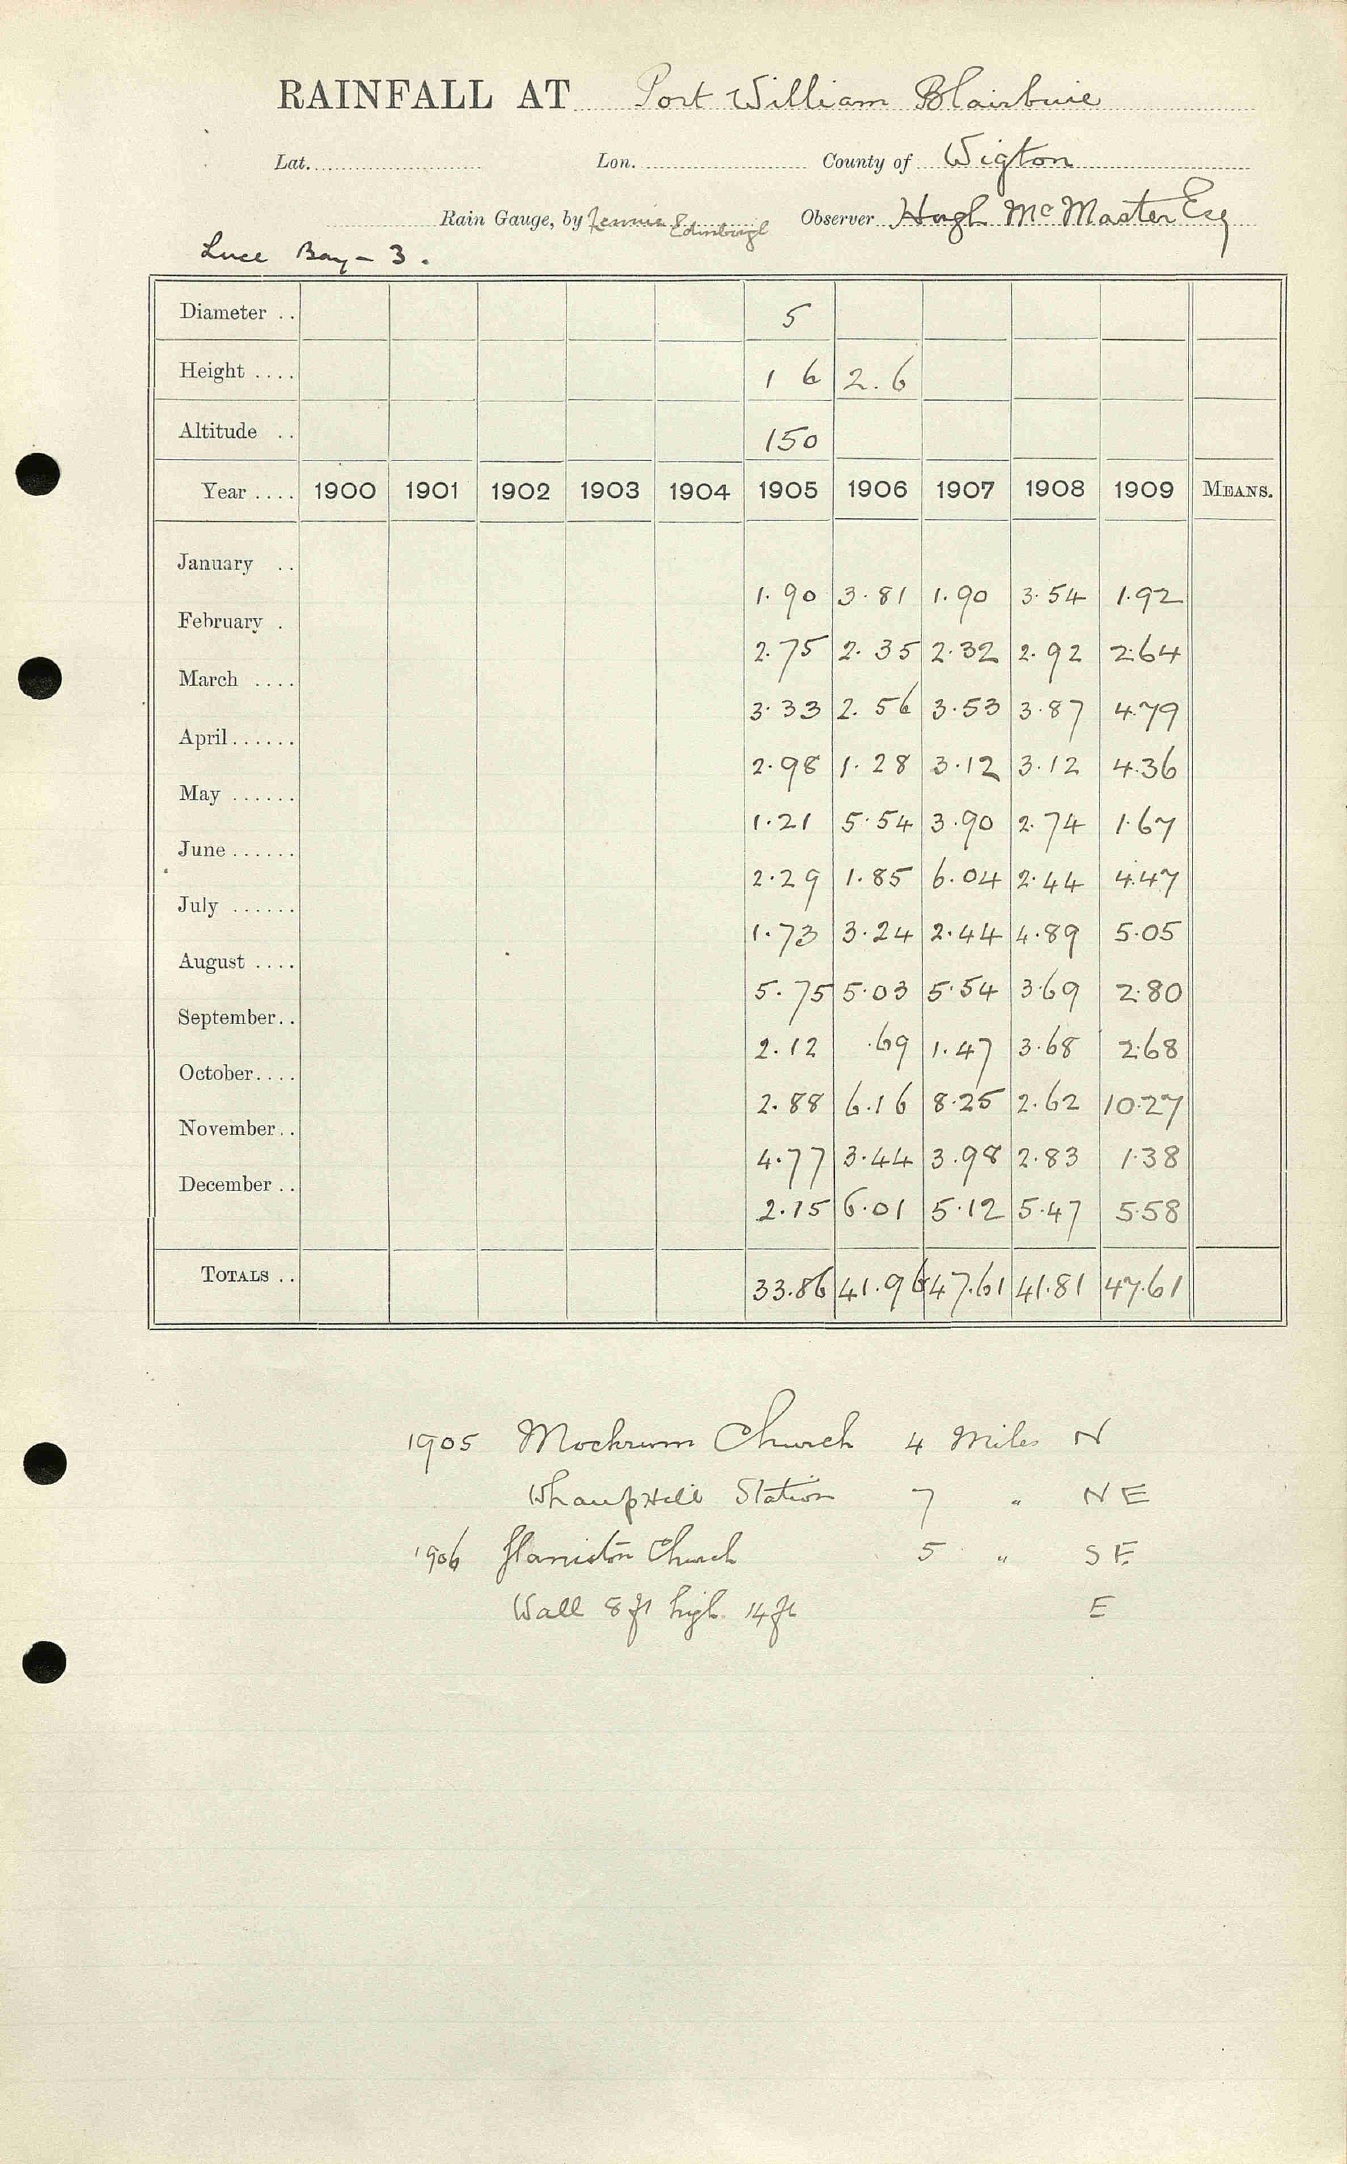 RAINFALL AT Port William Blairbuie
Lat. Lon. County of Wigton
Rain Gauge, by Lennie Edinburgh Observer Hugh McMaster Esq
Luce Bay - 3.
Diameter .. 5
Height .... 1 6 2.6
Altitude .. 150
Year .... 1900 1901 1902 1903 1904 1905 1906 1907 1908 1909 MEANS.
January .. 1.90 3.81 1.90 3.54 1.92
February . 2.75 2.35 2.32 2.92 2.64
March .... 3.33 2.56 3.53 3.87 4.79
April...... 2.98 1.28 3.12 3.12 4.36
May ...... 1.21 5.54 3.90 2.74 1.67
June ...... 2.29 1.85 6.04 2.44 4.47
July ...... 1.73 3.24 2.44 4.89 5.05
August .... 5.75 5.03 5.54 3.69 2.80
September.. 2.12 .69 1.47 3.68 2.68
October.... 2.88 6.16 8.25 2.62 10.27
November.. 4.77 3.44 3.98 2.83 1.38
December .. 2.15 6.01 5.12 5.47 5.58
TOTALS .. 33.86 41.96 47.61 41.81 47.61
1905 Mochrum Church 4 Miles N
Whauphill Station 7 " NE
1906 Church 5 " SE
Wall 8 ft high 14 ft E